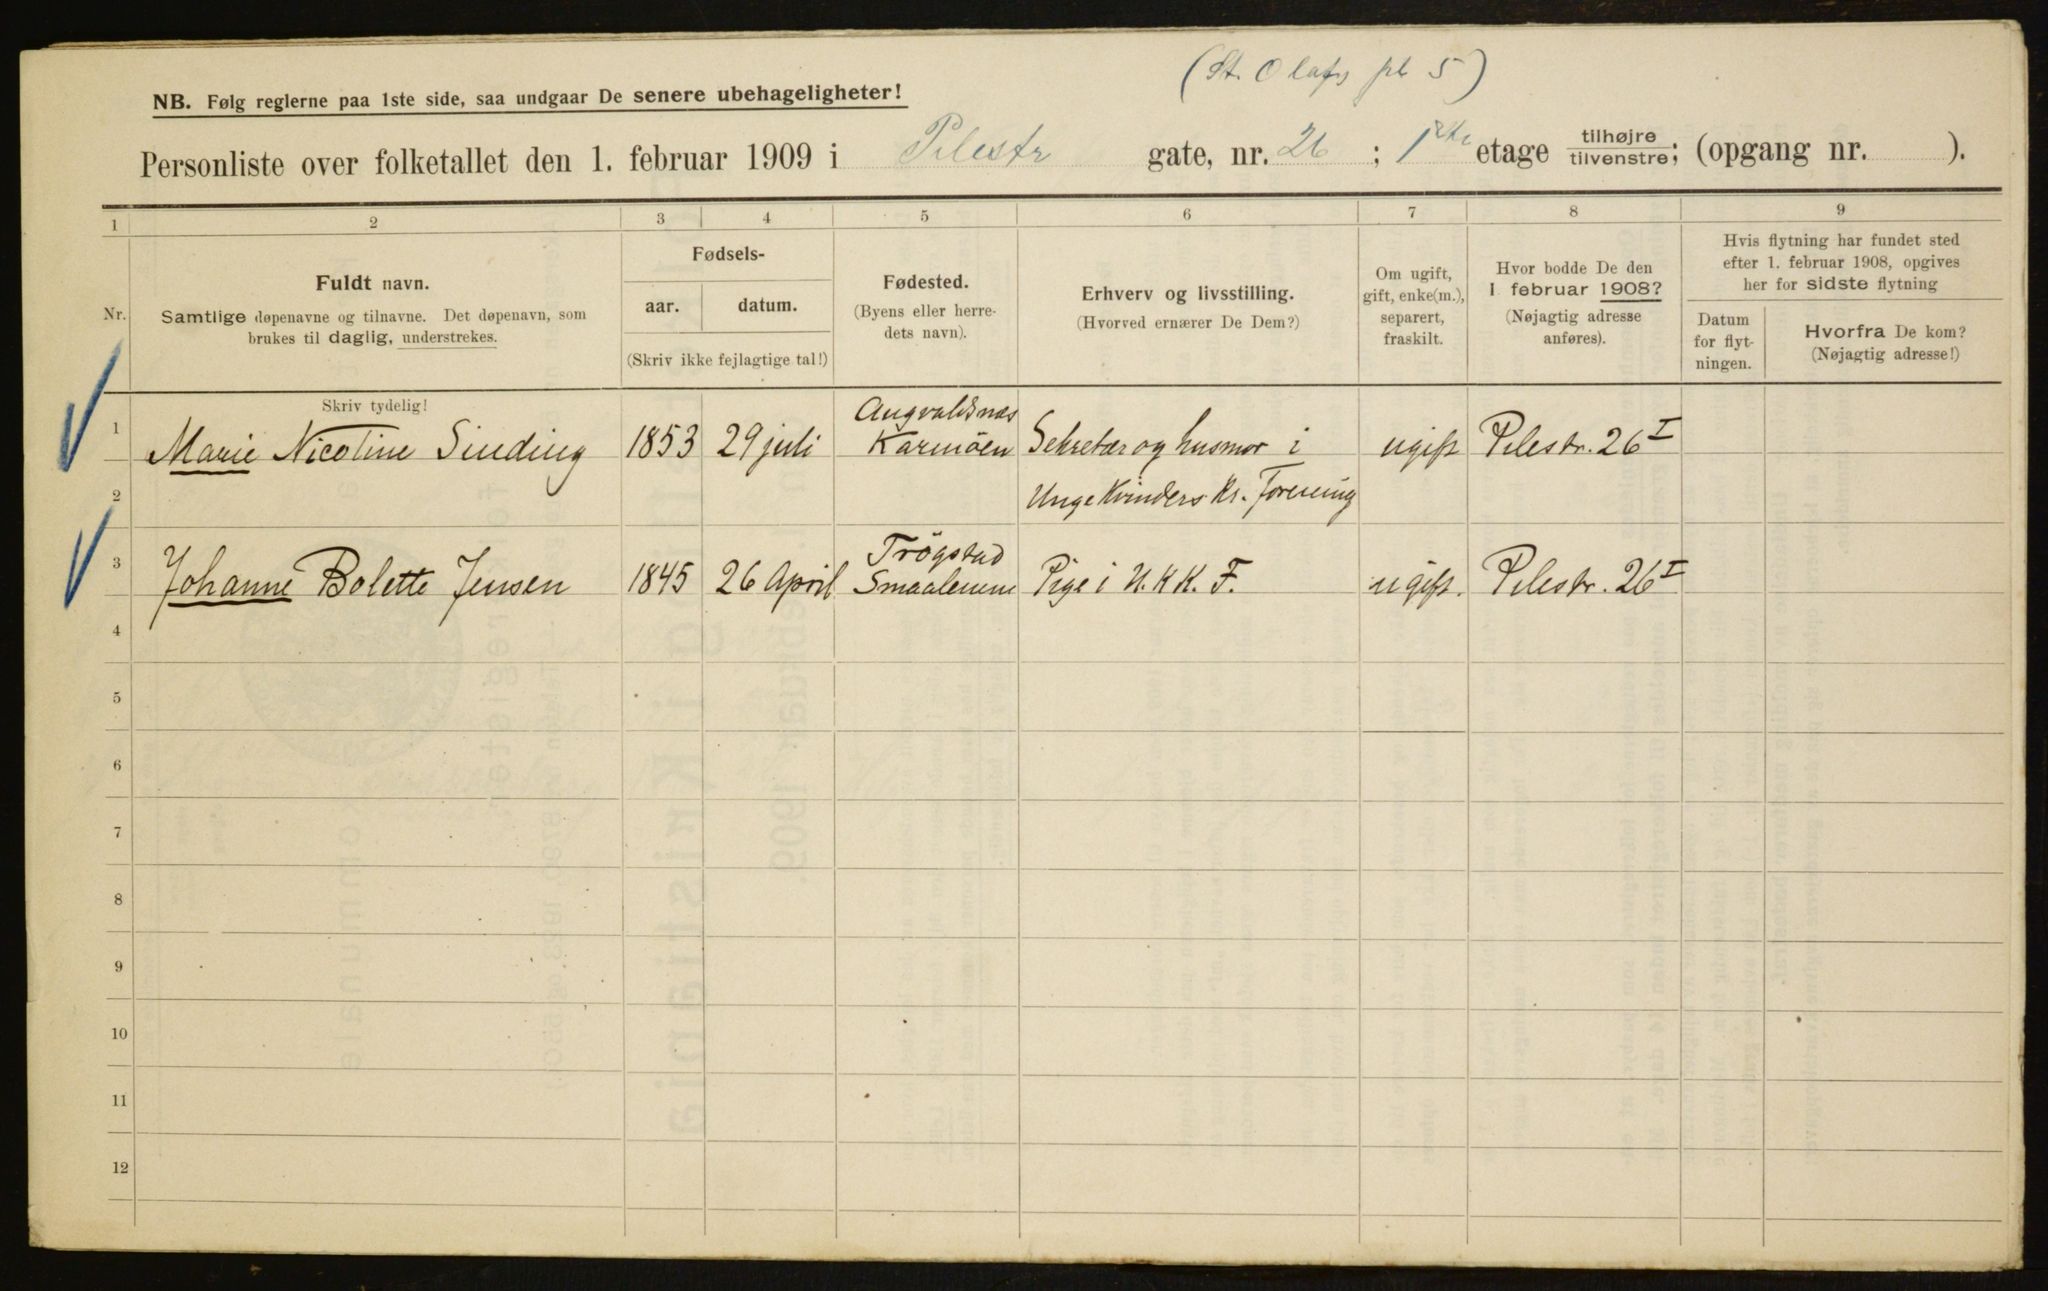 (St. Olafs pl 5)
NB. Følg reglerne paa 1ste side, saa undgaar De senere ubehageligheter!
Personliste over folketallet den 1. februar 1909 i Pilestr gate, nr. 26 ; 1ste etage tilhøjre tilvenstre; (opgang nr. ).
1 2 3 4 5 6 7 8 9
Nr.
Fuldt navn.
Samtlige døpenavne og tilnavne. Det døpenavn, som
brukes til daglig, understrekes.
Fødsels-
aar. datum.
(Skriv ikke fejlagtige tal!)
Fødested.
(Byens eller herre-
dets navn).
Erhverv og livsstilling.
(Hvorved ernærer De Dem?)
Om ugift,
gift, enke(m.),
separert,
fraskilt.
Hvor bodde De den
1 februar 1908?
(Nøjagtig adresse
anføres).
Hvis flytning har fundet sted
efter 1. februar 1908, opgives
her for sidste flytning
Datum
for flyt-
ningen.
Hvorfra De kom?
(Nøjagtig adresse!)
Skriv tydelig!
Augvaldsnæs
1 Marie Nicoline Sinding 1853 29 juli Karmöen Sekretær og husmor i ugift Pilestr. 26 I
2 Unge Kvinders Kr. Forening
Trögstad
3 Johanne Bolette Jensen 1845 26 April Smaalenene Pige i U. K K. F. ugift. Pilestr. 26 I
4
5
6
7
8
9
10
11
12